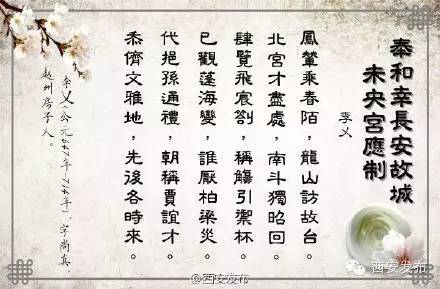 奉和幸長安故城
未央宮應制
李乂
鳳輦乘春陌，龍山訪故台。
北宮才盡處，南斗獨昭回。
肆覽飛宸劄，稱觴引禦杯。
已觀蓬海變，誰厭柏梁災。
代挹孫通禮，朝稱賈誼才。
忝儕文雅地，先後各時來。
李乂(公元647年—714年)，字尚真，
赵州房子人。
@西安发布
西安发布